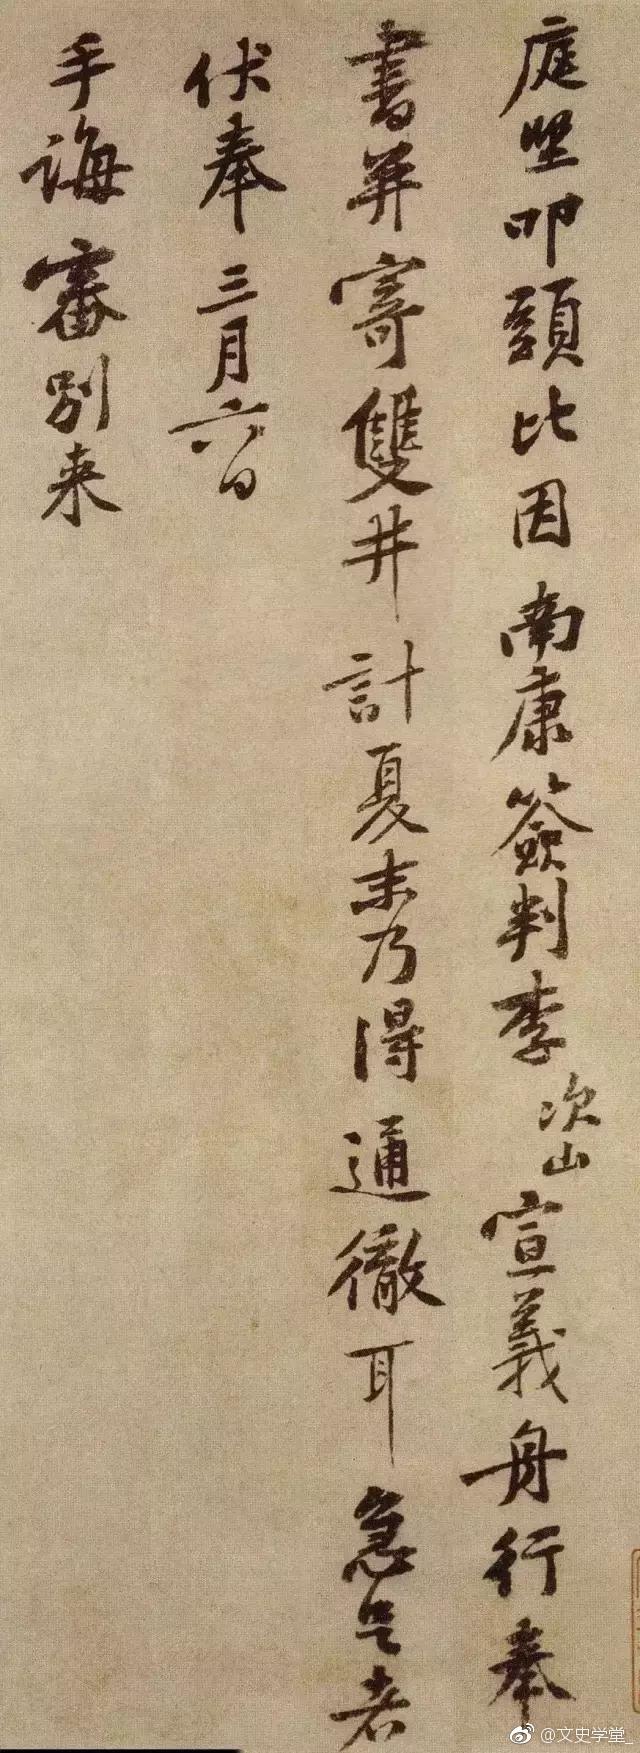 庭堅叩頭比因南康簽判李次山宣義舟行奉
書并寄雙井計夏末乃得通徹耳急足者
伏奉三月六日
手誨審別来
@文史学堂_